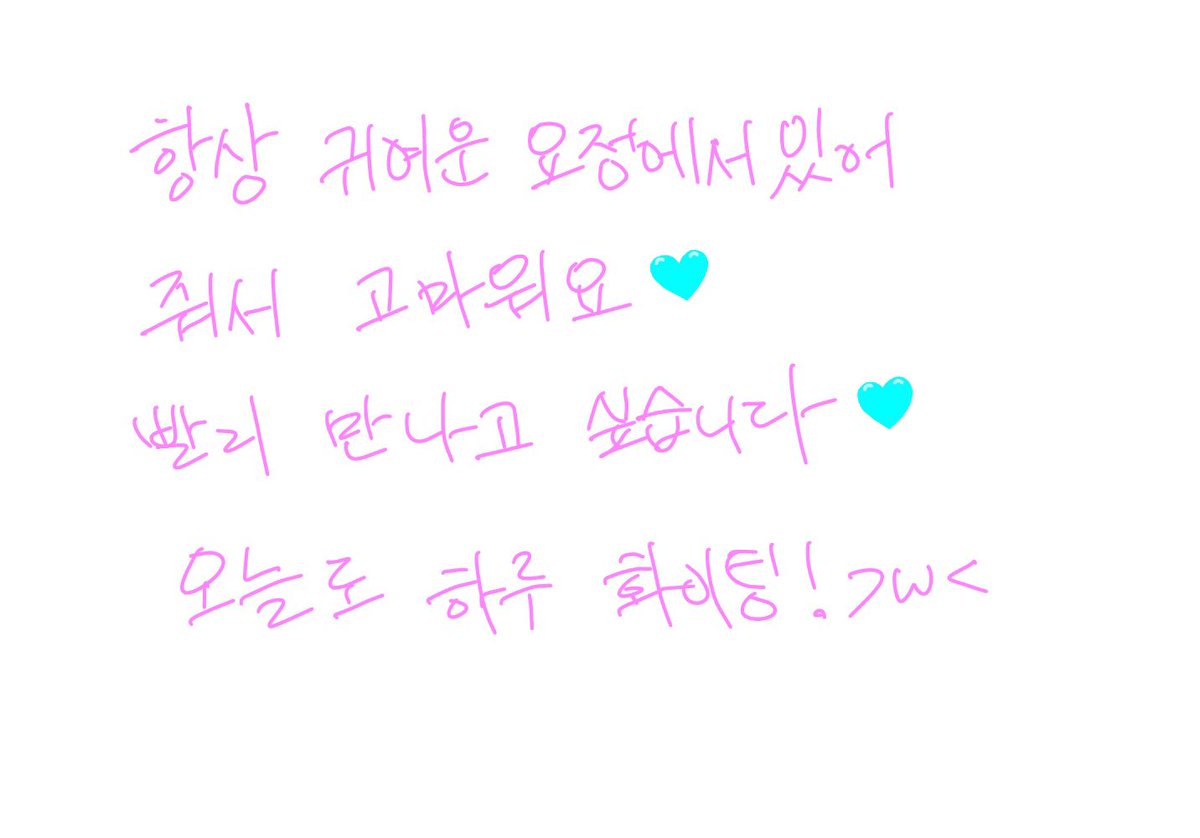 항상 귀여운 요정에서있어
줘서 고마워요🩵
빨리 만나고 싶습니다🩵
오늘도 하루 화이팅! >w<